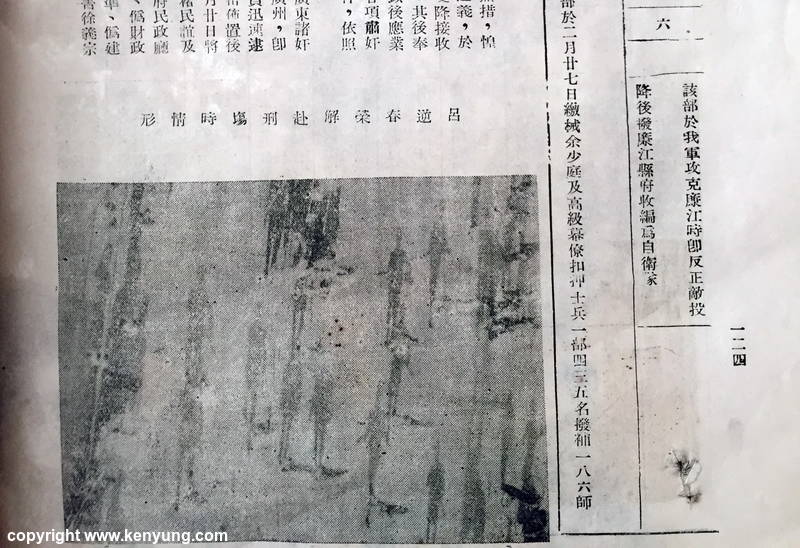 一二四
該部於我軍攻克廉江時卽反正敵投
降後撥廉江縣府收編爲自衛隊
六
部於二月廿七日繳械余少庭及高級幕僚扣押士兵一部四三五名撥補一八六師
措，惶
義，於
降接收
其後奉
後應業
各項肅奸
，依照
廣東諸奸
廣州，卽
員迅速逮
佈置後
月廿日將
民誼及
府民政廳
、僞財政
、僞建
書徐義宗
呂逆春榮解赴刑塲時情形
copyright www.kenyung.com